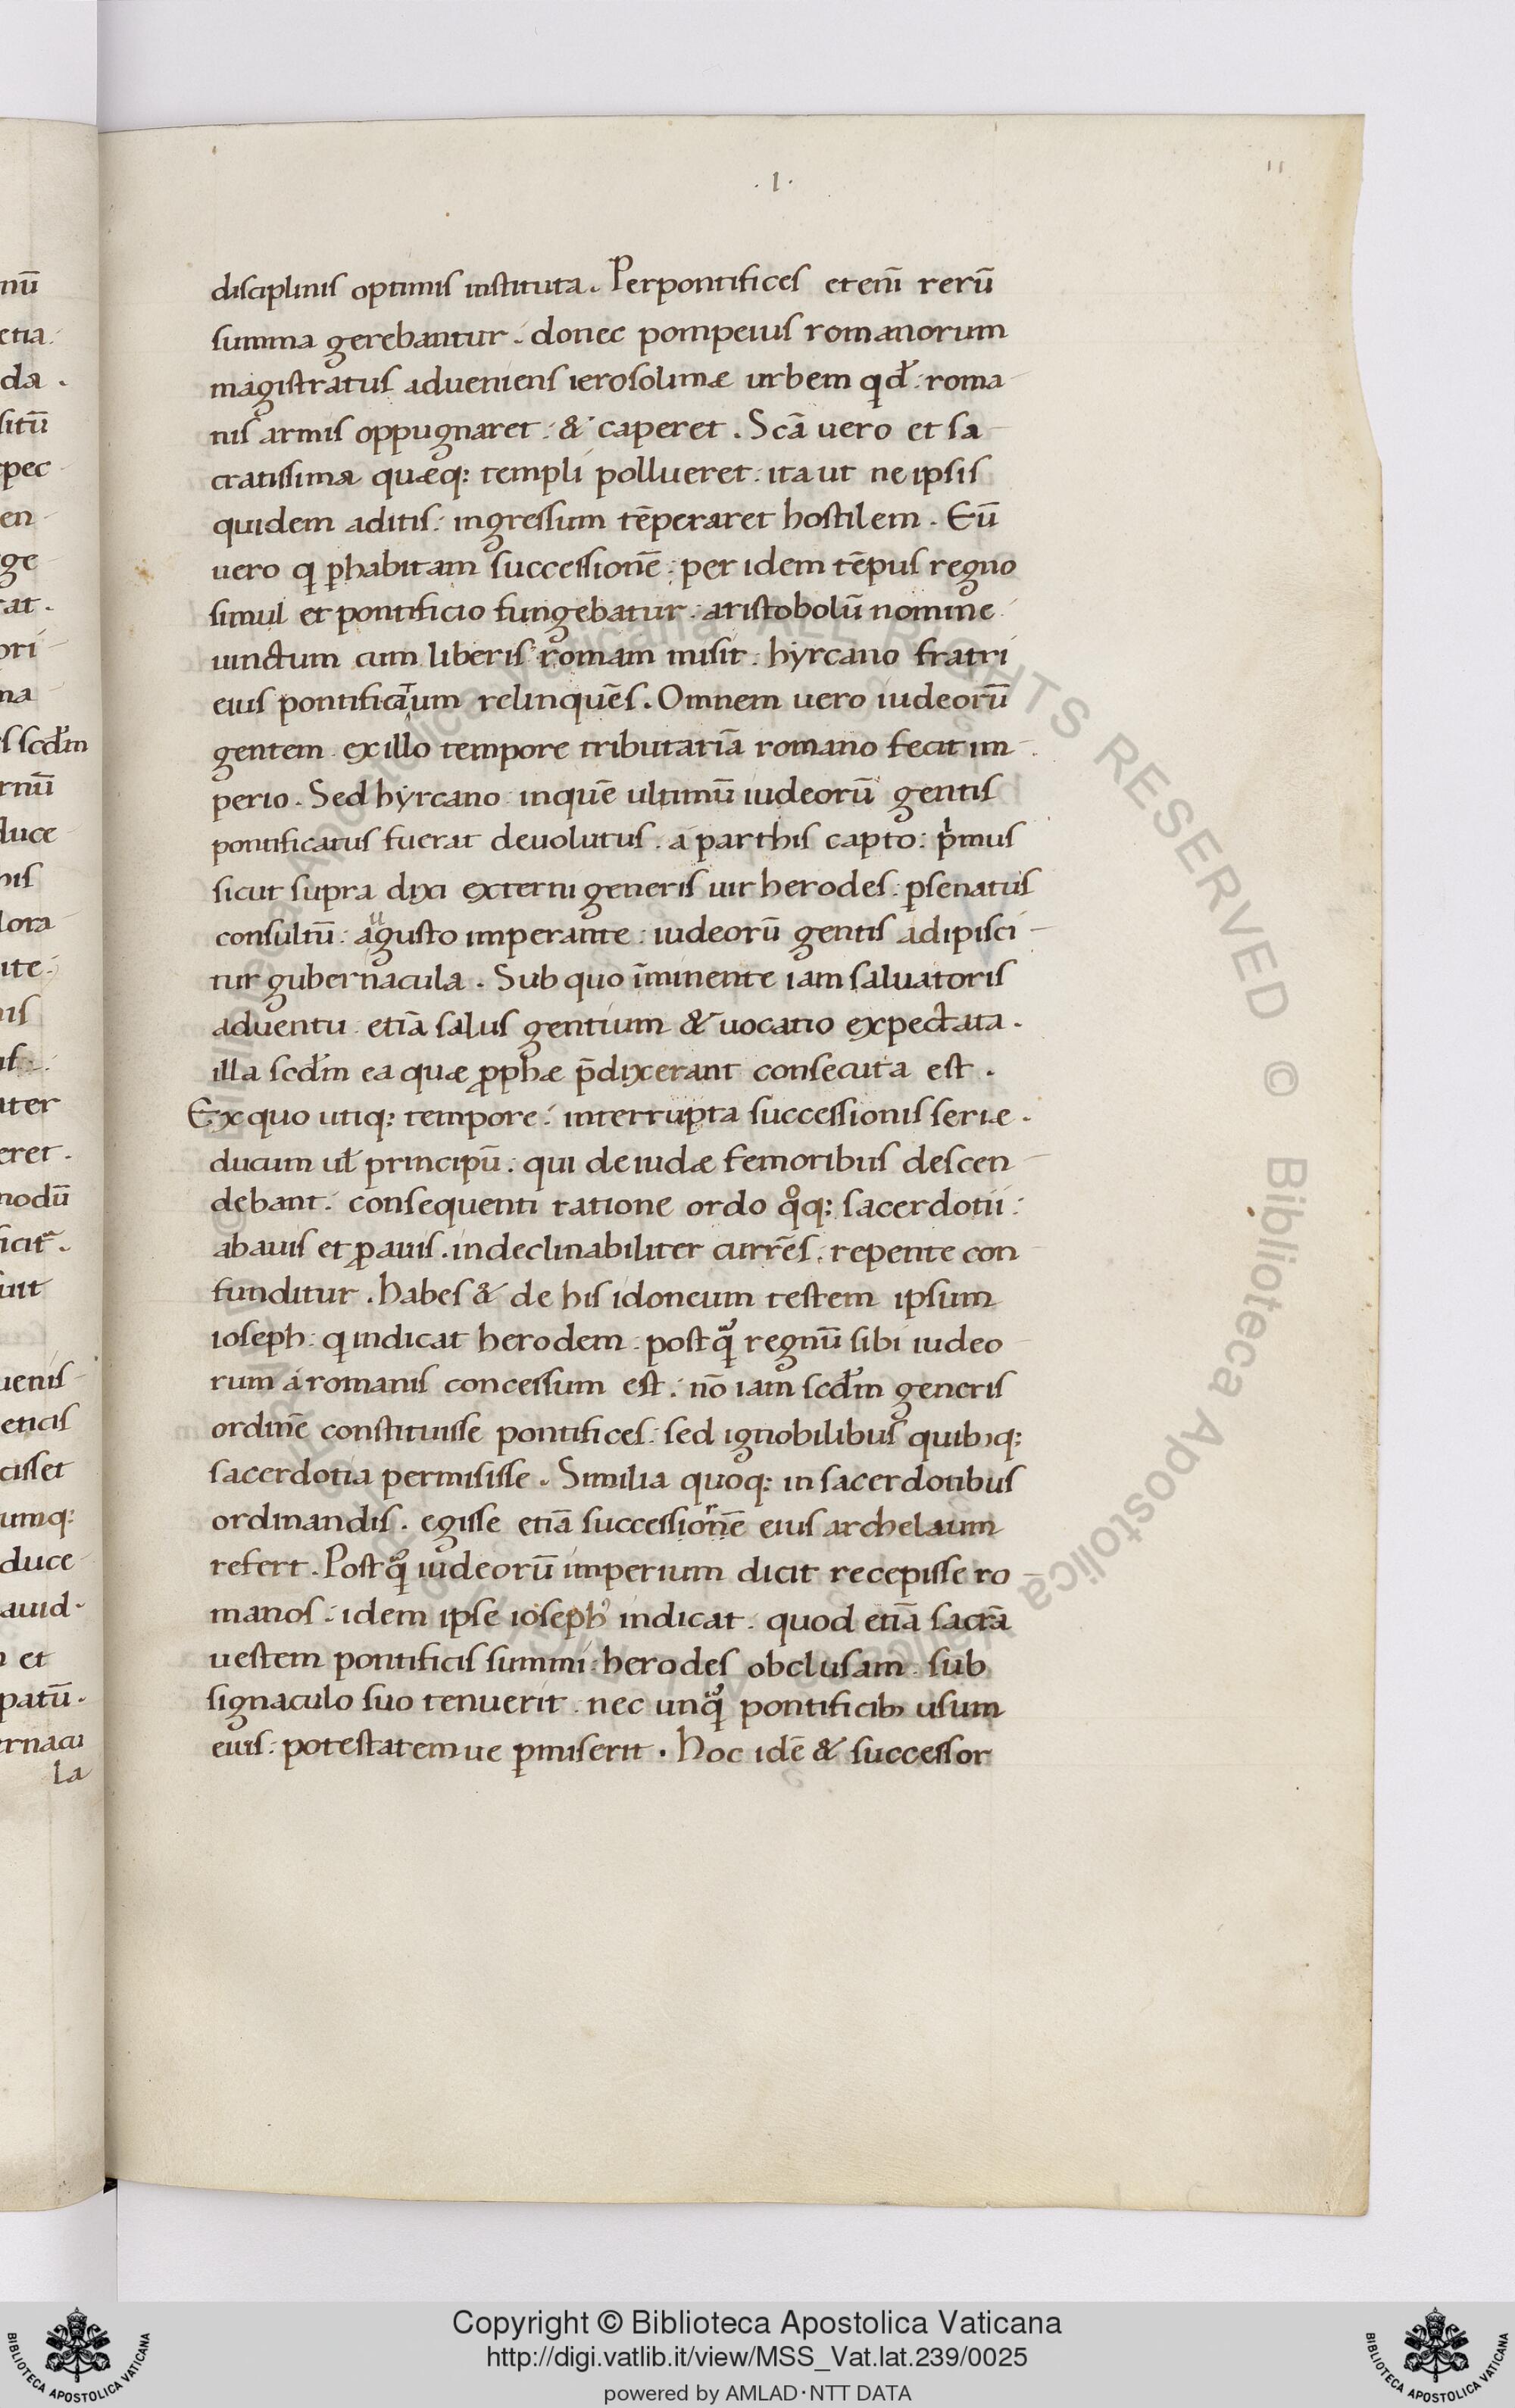 .I.
11
disciplinis optimis instituta. Per pontifices etenī rerū
summa gerebantur. donec pompeius romanorum
magistratus adueniens ierosolimæ urbem qđ. roma-
nis armis oppugnaret. & caperet. Scā uero et sa-
cratissima quæq; templi pollueret. ita ut ne ipsis
quidem aditis. ingressum tēperaret hostilem. Eū
uero q phabitam successionē. per idem tēpus regno
simul et pontificio fungebatur. aristobolū nomine
uinctum cum liberis romam misit. hyrcano fratri
eius pontificium relinquēs. Omnem uero iudeorū
gentem ex illo tempore tributariā romano fecit im-
perio. Sed hyrcano inquē ultimū iudeorū gentis
pontificatus fuerat deuolutus. a parthis capto. pmus
sicut supra dixi externi generis uir herodes. psenatus
consultū. augusto imperante. iudeorū gentis adipisci-
tur gubernacula. Sub quo īminente iam saluatoris
aduentu etiā salus gentium & uocatio expectata.
illa scđm ea quæ pphæ p̄dixerant consecuta est.
Ex quo utiq; tempore. interrupta successionis seriæ.
ducum ul principū. qui de iudæ femoribus descen-
debant. consequenti ratione ordo qoq; sacerdotii.
abauis et pauis. indeclinabiliter currēs. repente con-
funditur. habes & de his idoneum testem ipsum
ioseph. q indicat herodem. postq regnū sibi iudeo-
rum a romanis concessum est. nō iam scđm generis
ordinē constituisse pontifices. sed ignobilibus quibꝫq;
sacerdotia permisisse. Similia quoq; in sacerdotibus
ordinandis. egisse etiā successionē eius archelaum
refert. Postq iudeorū imperium dicit recepisse ro-
manos. idem ipse ioseph' indicat. quod etiā sacrā
uestem pontificis summi. herodes obclusam sub
signaculo suo tenuerit. nec unq pontificibꝫ usum
eius. potestatem ue pmiserit. Hoc idē & successor
nū
etia.
da.
sitū
pec-
en-
ge-
rat.
ori-
ma-
s scđm
rnū
duce
nis
lora-
ite.
nis
us.
iter
eret.
modū
ficit.
uit
uenis-
eticis
cisset
umq;
duce
auid.
et
patū.
ernacu
la
© Biblioteca Apostolica Vaticana ALL RIGHTS RESERVED
© Biblioteca Apostolica Vaticana
Copyright © Biblioteca Apostolica Vaticana
http://digi.vatlib.it/view/MSS_Vat.lat.239/0025
powered by AMLAD·NTT DATA
BIBLIOTECA APOSTOLICA VATICANA
BIBLIOTECA APOSTOLICA VATICANA